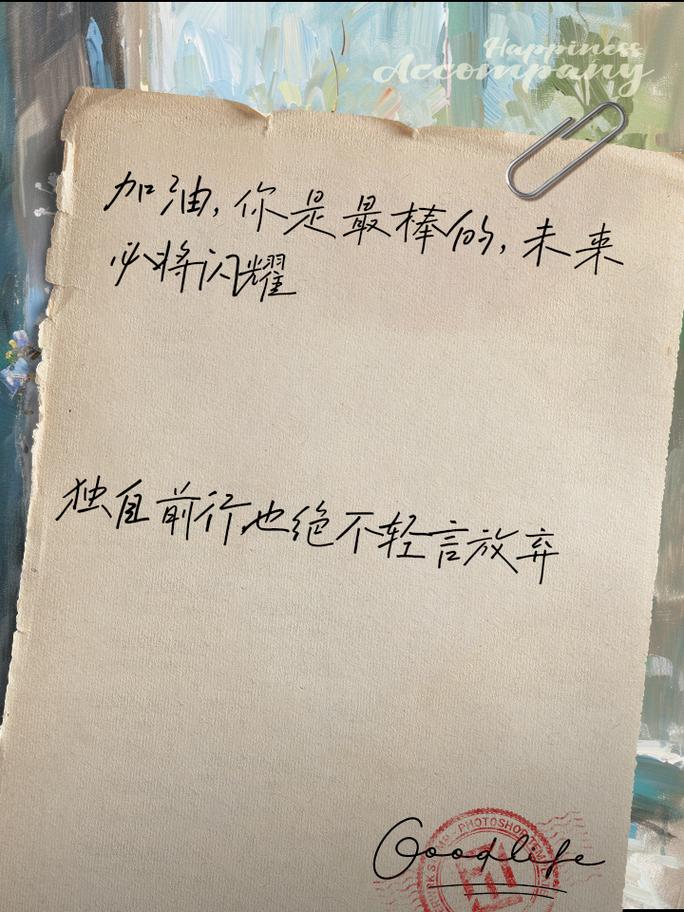 Happiness
Accompany
加油,你是最棒的,未来
必将闪耀
独自前行也绝不轻言放弃
PHOTOSHOP
Goodlife